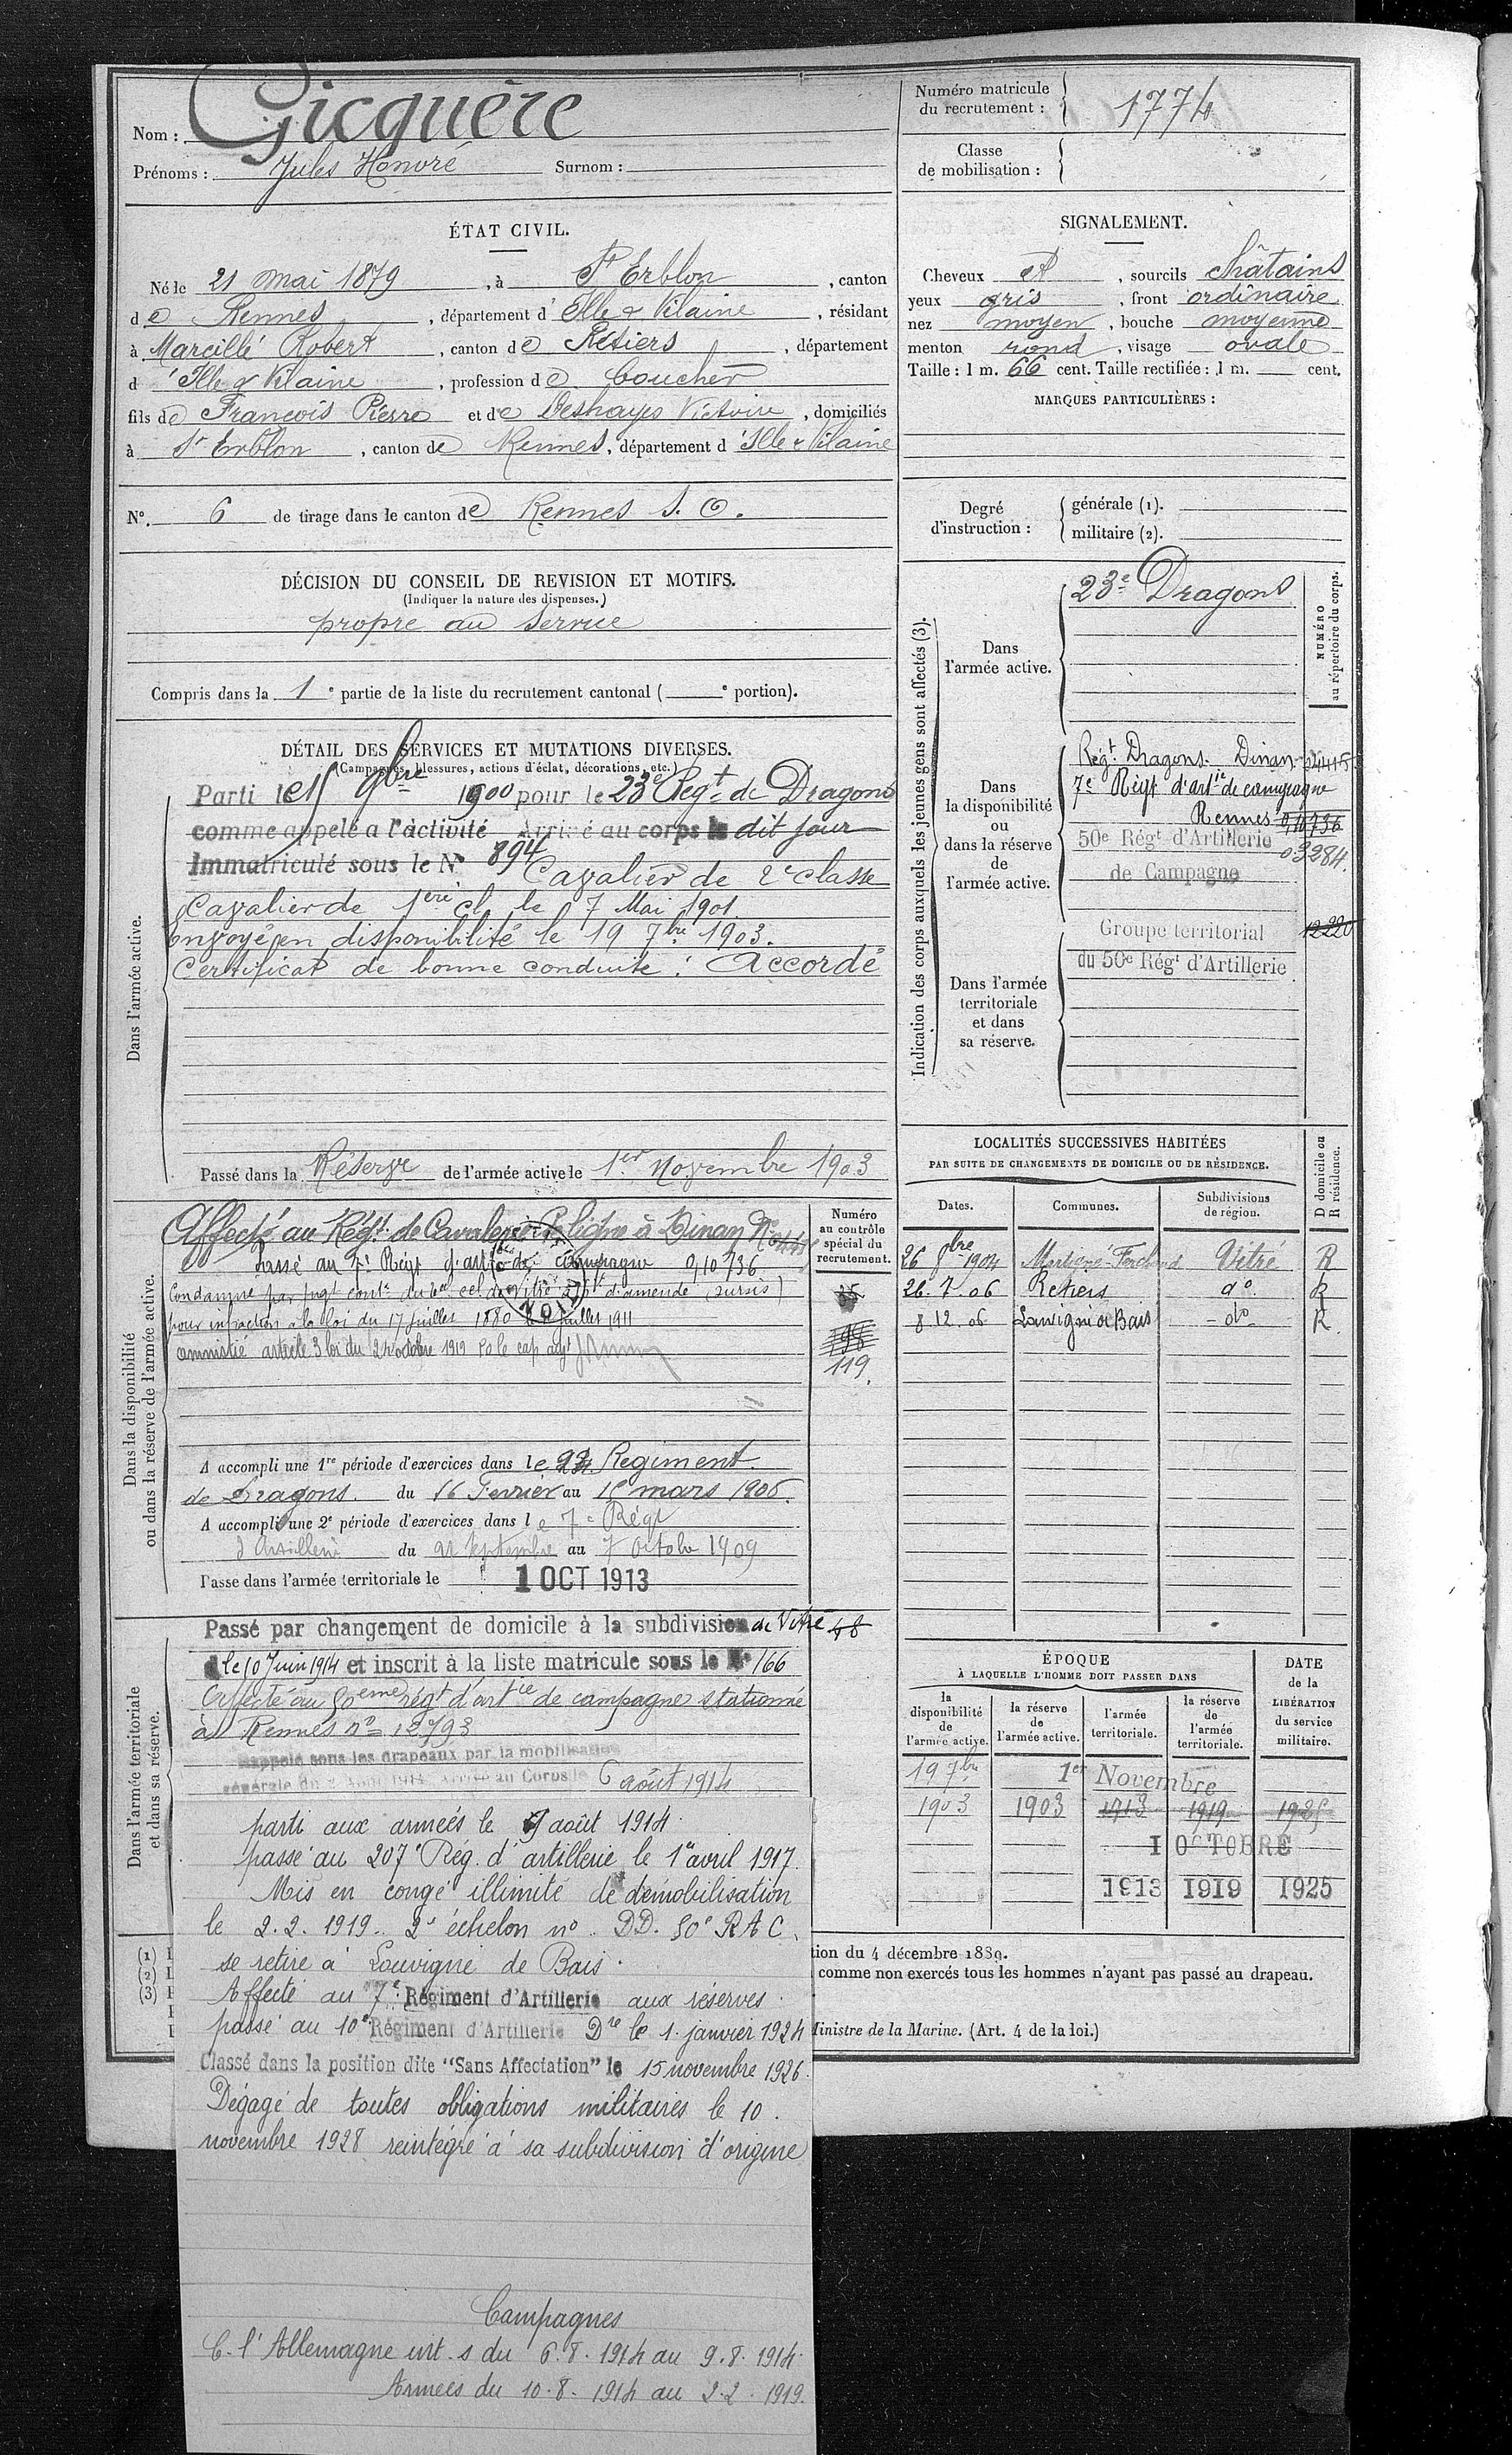 Nom : Gicquère
Prénoms : Jules Honoré Surnom :
Numéro matricule du recrutement : 1774
Classe de mobilisation :
ÉTAT CIVIL.
Né le 21 mai 1879, à St Erblon, canton
de Rennes, département d'Ille & Vilaine, résidant
à Marcillé Robert, canton de Retiers, département
d'Ille & Vilaine, profession de boucher
fils de François Pierre et de Deshayes Victoire, domiciliés
à St Erblon, canton de Rennes, département d'Ille & Vilaine
N°. 6 de tirage dans le canton de Rennes S. O.
SIGNALEMENT.
Cheveux et, sourcils châtains
yeux gris, front ordinaire
nez moyen, bouche moyenne
menton rond, visage ovale
Taille : 1 m. 66 cent. Taille rectifiée : 1 m. cent.
MARQUES PARTICULIÈRES :
Degré d'instruction : générale (1).
militaire (2).
DÉCISION DU CONSEIL DE REVISION ET MOTIFS.
(Indiquer la nature des dispenses.)
propre au service
Compris dans la 1e partie de la liste du recrutement cantonal ( e portion).
DÉTAIL DES SERVICES ET MUTATIONS DIVERSES.
(Campagnes, blessures, actions d'éclat, décorations, etc.)
Dans l'armée active.
Parti le 15 9bre 1900 pour le 23e Regt de Dragons
comme appelé a l'activité Arrivé au corps le dit jour
Immatriculé sous le N° 894 Cavalier de 2e classe
Cavalier de 1ère cl. le 7 Mai 1901.
Envoyé en disponibilité le 19 7bre 1903.
Certificat de bonne conduite : Accordé
Passé dans la Réserve de l'armée active le 1er Novembre 1903
Indication des corps auxquels les jeunes gens sont affectés (3).
NUMÉRO au répertoire du corps.
Dans l'armée active.
23e Dragons
Dans la disponibilité ou dans la réserve de l'armée active.
Régt Dragons. Dinan
7e Régt d'artie de campagne
Rennes 0,10736
50e Régt d'Artillerie 03284.
de Campagne
Dans l'armée territoriale et dans sa réserve.
Groupe territorial 12220
du 50e Régt d'Artillerie
LOCALITÉS SUCCESSIVES HABITÉES
PAR SUITE DE CHANGEMENTS DE DOMICILE OU DE RÉSIDENCE.
D domicile ou R résidence.
Dates. Communes. Subdivisions de région.
26 8bre 1904 Martigné-Ferchaud Vitré R
26.7.06 Retiers do. R
8.12.06 Louvigné de Bais do R.
Dans la disponibilité ou dans la réserve de l'armée active.
Numéro au contrôle spécial du recrutement.
Affecté au Régt. de Cavalerie à Dinan No
Passé au 7e Régt d'artie de campagne 0,10736
Condamné par jugt contre du de Vitré à d'amende (sursis)
pour infraction à la loi du 17 juillet 1880 juillet 1911
amnistié article 3 loi du 24 octobre 1919 Po le cap adjt
119.
A accompli une 1re période d'exercices dans le Regiment
de Dragons. du 16 Février au 15 mars 1906.
A accompli une 2e période d'exercices dans le 7e Régt
d'Artillerie du 21 septembre au 7 octobre 1909
Passé dans l'armée territoriale le 1 OCT 1913
Dans l'armée territoriale et dans sa réserve.
Passé par changement de domicile à la subdivision de Vitré 48
le 10 Juin 1914 et inscrit à la liste matricule sous le N° 166
Affecté au 50ème régt d'artie de campagne stationné
à Rennes no 12793
Rappelé sous les drapeaux par la mobilisation
générale du 2 Août 1914. Arrivé au Corps le 6 août 1914
parti aux armées le 9 août 1914.
passé au 207e Rég. d'artillerie le 1er avril 1917.
Mis en congé illimité de démobilisation
le 2.2.1919. 2e échelon no DD. 50e RAC.
se retire à Louvigné de Bais.
Affecté au 7e Régiment d'Artillerie aux réserves.
passé au 10e Régiment d'Artillerie Dre le 1. janvier 1924
Classé dans la position dite "Sans Affectation" le 15 novembre 1926.
Dégagé de toutes obligations militaires le 10.
novembre 1928 réintégré à sa subdivision d'origine
Campagnes
C. l'Allemagne int. s du 6.8.1914 au 9.8.1914.
Armées du 10.8.1914 au 2.2.1919.
ÉPOQUE
À LAQUELLE L'HOMME DOIT PASSER DANS
DATE de la LIBÉRATION du service militaire.
la disponibilité de l'armée active. la réserve de l'armée active. l'armée territoriale. la réserve de l'armée territoriale.
19 7bre 1er Novembre
1903 1903 1913 1919 1925
1 OCTOBRE
1913 1919 1925
(1) I
(2) I
(3) I
tion du 4 décembre 1889.
comme non exercés tous les hommes n'ayant pas passé au drapeau.
Ministre de la Marine. (Art. 4 de la loi.)